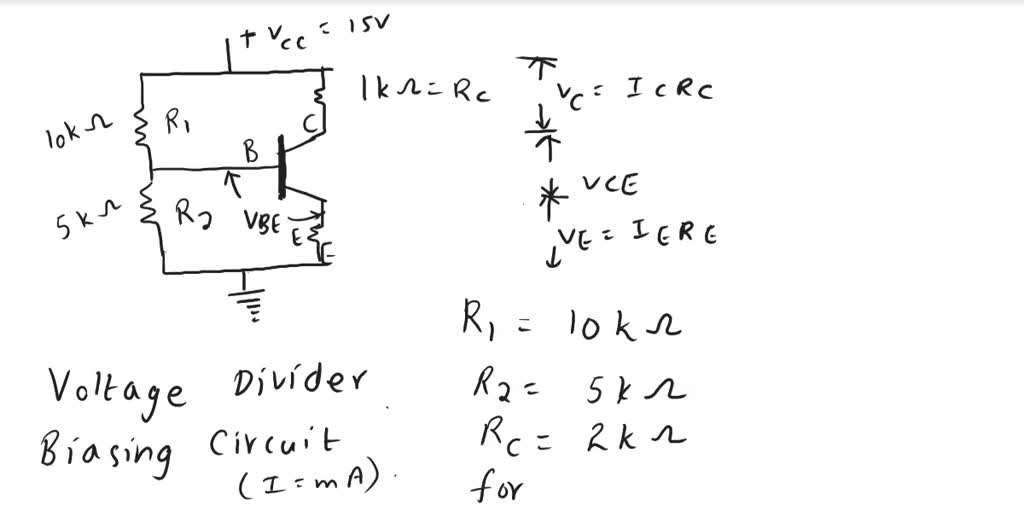 + VCC = 15V
1kΩ = RC
10kΩ
R1
C
B
5kΩ
R2
VBE
E
E
VC = ICRC
VCE
VE = IERE
R1 = 10kΩ
R2 = 5kΩ
RC = 2kΩ
for
Voltage Divider
Biasing Circuit
(I = mA).